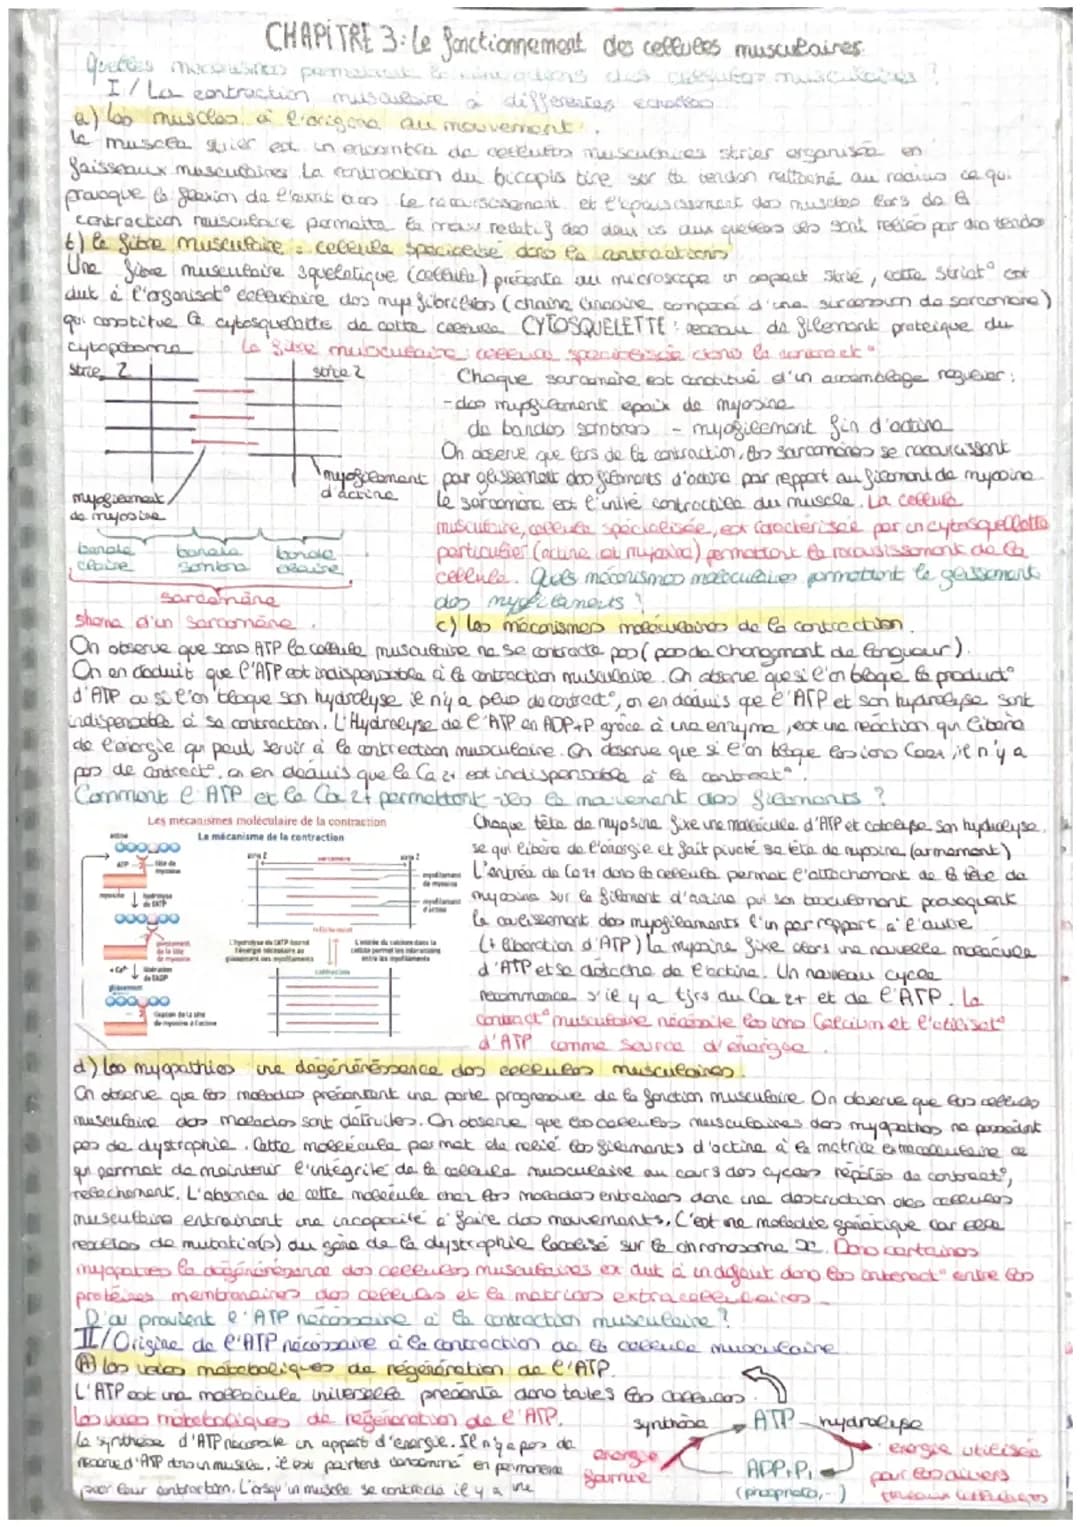 CHAPITRE 3: Le fonctionnement des cellules musculaires
Quelles mécanismes permettent musculaires ?
I / La contraction musculaire à différentes échelles
a) les muscles à l'origine du mouvement.
Le muscle strier est un ensemble de cellules musculaires strier organisée en
faisseaux musculaires. La contraction du biceps tire sur le tendon rattaché au radius ce qui
provoque la flexion de l'avant bras. Le raccourcissement et l'épaississement des muscles lors de la
contraction musculaire permette le mouv relatif des deux os aux quelles ils sont reliés par des tendons
b) la fibre musculaire : cellule spécialisé dans la contractions
Une fibre musculaire squelatique (cellule) présente au microscope un aspect strié, cette striat° est
dut à l'organisat° cellulaire des myofibrilles (chaine linéaire composé d'une succession de sarcomère)
qui constitue le cytosquelette de cette cellule. CYTOSQUELETTE : réseau de filement protéique du
cytoplasme
La fibre musculaire cellule spécialisée dans la contract°
strie Z
strie Z
myofilement de myosine
myofilement d'actine
bande claire
bande sombre
bande claire
sarcomère
shema d'un sarcomère.
Chaque sarcomère est constitué d'un assemblage régulier :
- des myofilement épaix de myosine
de bandes sombres - myofilement fin d'actine
On observe que lors de la contraction, les sarcomères se raccourcissent
par glissement des filements d'actine par rapport au filement de myosine
Le sarcomère est l'unité contractile du muscle. La cellule
musculaire, cellule spécialisée, est caractérisée par un cytosquellette
particulier (actine et myosine) permettant le raccourcissement de la
cellule. Quels mécanismes moléculaires permettent le glissement
des myofilaments ?
c) les mécanismes moléculaires de la contraction.
On observe que sans ATP la cellule musculaire ne se contracte pas (pas de changement de longueur).
On en déduit que l'ATP est indispensable à la contraction musculaire. On observe que si l'on bloque la product°
d'ATP ou si l'on bloque son hydrolyse il n'y a plus de contract°, on en déduis que l'ATP et son hydrolyse sont
indispensable à sa contraction. L'Hydrolyse de l'ATP en ADP+P grâce à une enzyme, est une réaction qui libère
de l'énergie qui peut servir à la contraction musculaire. On observe que si l'on bloque les ions Ca2+, il n'y a
pas de contract°, on en déduis que le Ca 2+ est indispensable à la contract°.
Comment l'ATP et le Ca 2+ permettent -ils le mouvement des filements ?
Les mécanismes moléculaire de la contraction
Le mécanisme de la contraction
actine
ATP
tête de myosine
myosine
hydrolyse de l'ATP
pivotement de la tête de myosine
+ Ca²⁺
libération de l'ADP
glissement
fixation de la tête de myosine à l'actine
strie Z
sarcomère
strie Z
myofilament de myosine
myofilament d'actine
L'hydrolyse de l'ATP fournit l'énergie nécessaire au glissement des myofilaments
L'entrée du calcium dans la cellule permet les interactions entre les myofilaments
Chaque tête de myosine fixe une molécule d'ATP et catalyse son hydrolyse.
se qui libère de l'énergie et fait pivoté sa tête de myosine (armement)
L'entrée de Ca2+ dans la cellule permet l'attachement de la tête de
myosine sur le filement d'actine puis son basculement provoquent
le coulissement des myofilaments l'un par rapport à l'autre
(+ libération d'ATP) La myosine fixe alors une nouvelle molécule
d'ATP et se détache de l'actine. Un nouveau cycle
recommence s'il y a tjrs du Ca 2+ et de l'ATP. La
contract° musculaire nécessite les ions Calcium et l'utilisat°
d'ATP comme source d'énergie.
d) les myopathies une dégénérescence des cellules musculaires.
On observe que les malades présentent une perte progressive de la fonction musculaire. On observe que les cellules
musculaire des malades sont détruites. On observe que les cellules musculaires des myopathes ne possèdent
pas de dystrophie. Cette mollécule permet de relié les filements d'actine à la matrice extracellulaire ce
qui permet de maintenir l'intégrité de la cellule musculaire au cours des cycles répétés de contract°,
relachement. L'absence de cette molécule chez les malades entraines donc une destruction des cellules
musculaire entrainent une incapacité à faire des mouvements. C'est une maladie génétique car elle
resulte de mutation(s) du gène de la dystrophie localisé sur le chromosome X. Dans certaines
myopaties la dégénérescence des cellules musculaires ex dut à un défaut dans les interact° entre les
protéines membranaires des cellules et la matrices extracellulaires
D'ou provient l'ATP nécessaire à la contraction musculaire ?
II/ Origine de l'ATP nécessaire à la contraction de la cellule musculaire
(A) les voies métaboliques de régénération de l'ATP.
L'ATP est une molécule universelle présente dans toutes les cellules.
Les voies métaboliques de régénération de l'ATP.
La synthèse d'ATP nécessite un apport d'énergie. Il n'y a pas de
réserve d'ATP dans un muscle, il est pourtent consommé en permanence
pour leur contraction. Lorsqu'un muscle se contracte il y a une
synthèse
ATP
hydrolyse
énergie fournie
ADP+Pi
(phosphate, -)
énergie utilisée
par les divers